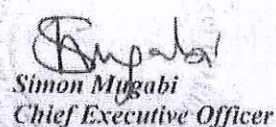 Simon Mugabi
Chief Executive Officer